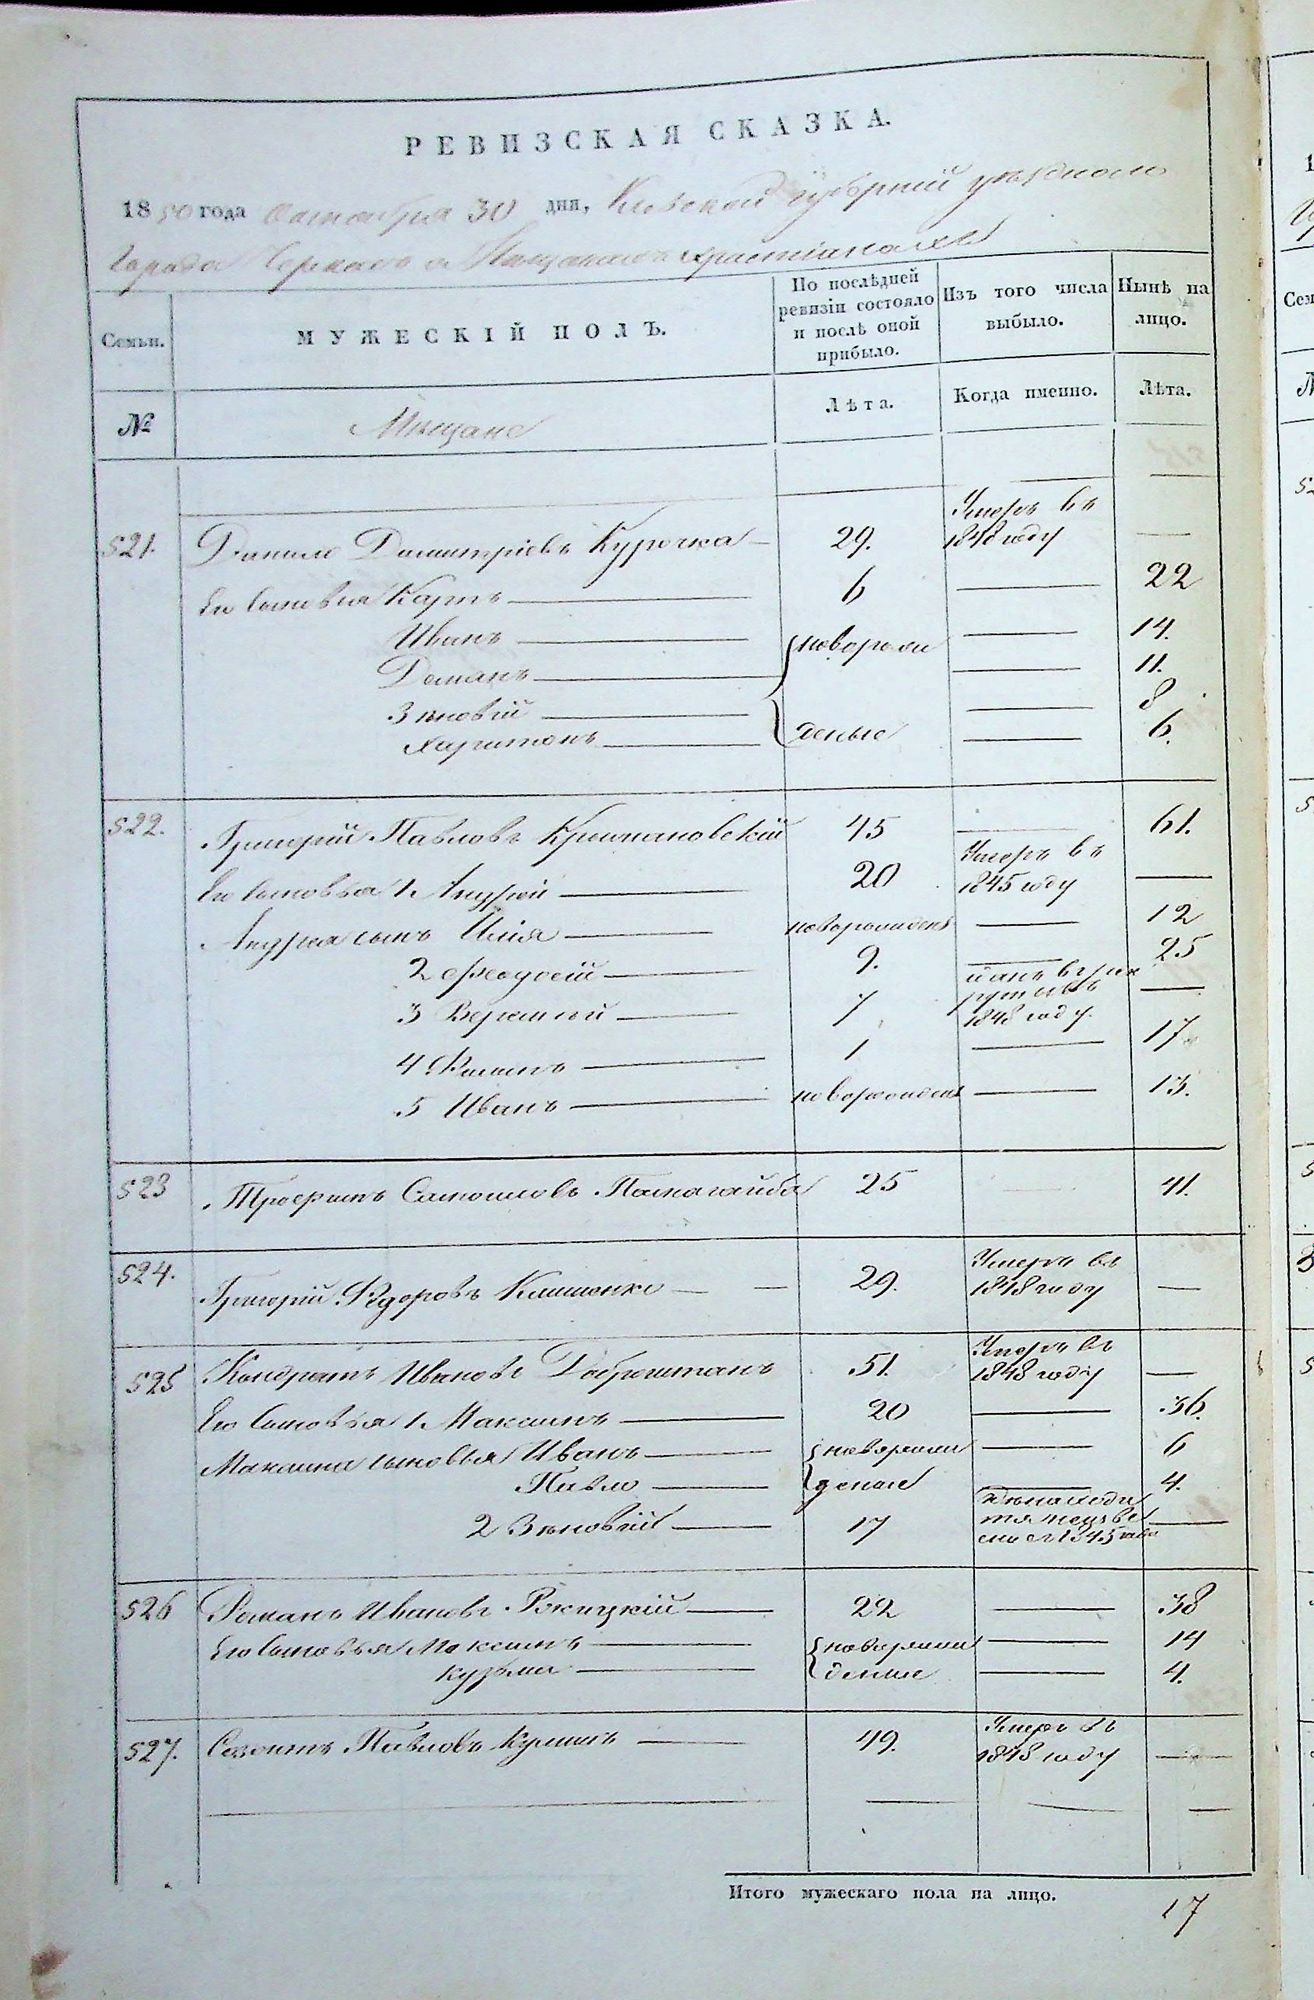 РЕВИЗСКАЯ СКАЗКА.
1850 года Октября 30 дня, Киевской Губерніи уѣзднаго
города Черкасъ о Мѣщанахъ христіанахъ
Семьи. МУЖЕСКІЙ ПОЛЪ. По послѣдней ревизіи состояло и послѣ оной прибыло. Изъ того числа выбыло. Нынѣ на лицо.
№ Мѣщане Лѣта. Когда именно. Лѣта.
521. Данило Димитріевъ Курочка 29. Умеръ въ 1848 году
Его сыновья Карпъ 6 22
Иванъ новорож 14.
Доманъ 11.
Зѣновій 8
Харитонъ денные 6.
522. Григорій Павловъ 45 61.
Его сыновья 1. Андрей 20 Умеръ въ 1845 году
Андрея сынъ Илія новорожденъ 12
2 Ѳеодосій 9. 25
3 7 1848 году.
4 1 17
5 Иванъ новорожденъ 13.
523 Трофимъ Самойловъ 25 41.
524. Григорій Ѳедоровъ 29. Умеръ въ 1848 году
525 Кондратъ Иванов Доброштанъ 51. Умеръ въ 1848 году
Его сыновья 1. Максимъ 20 36.
Максима сыновья Иванъ новорож 6
Павло денные 4.
2 Зѣновій 17 1845 года
526 Романъ Иванов Рокицкій 22 38
Его сыновья Максимъ новорож 14
Кузьма денные 4.
527. Павловъ 49. Умеръ въ 1848 году
Итого мужескаго пола на лицо. 17